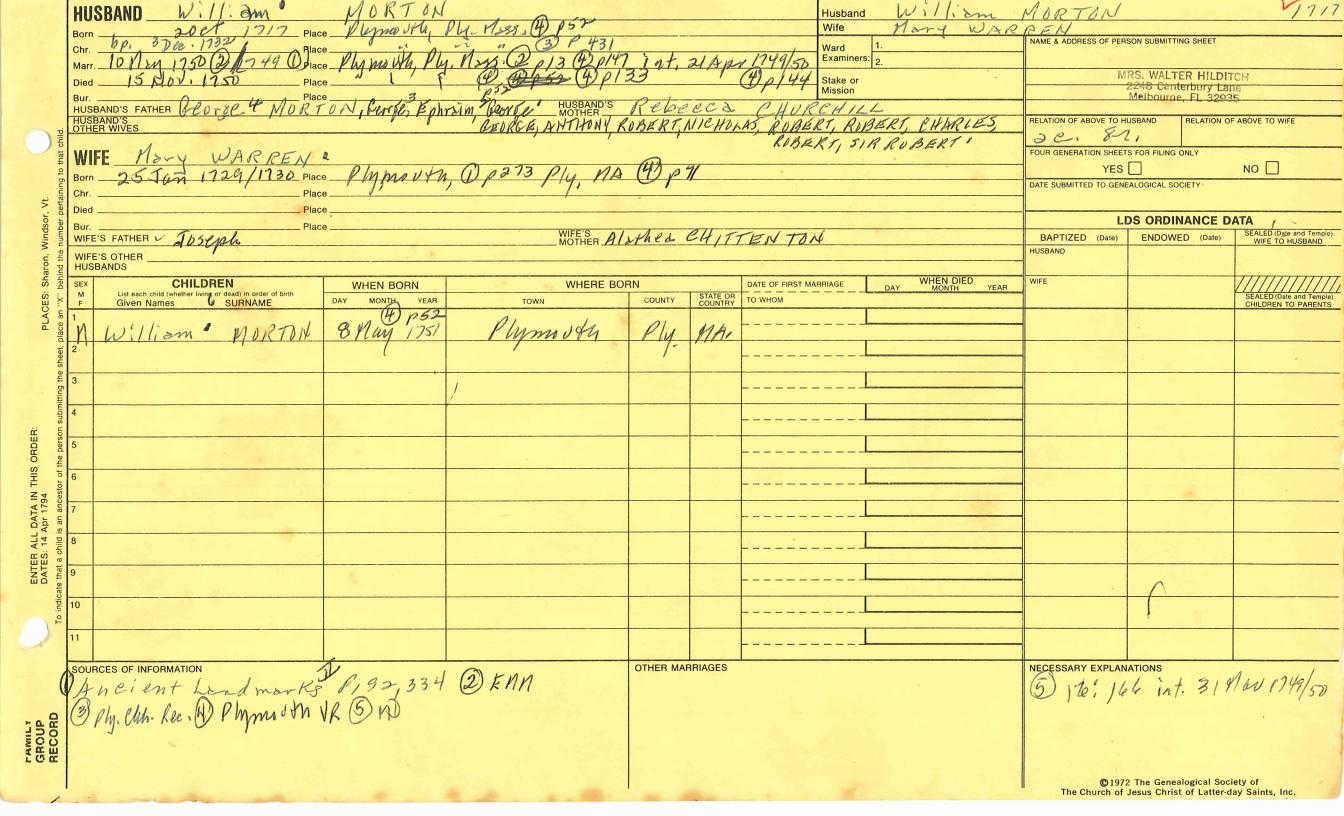 HUSBAND William MORTON
Born 20 Oct 1717 Place Plymouth, Ply. Mass. (4) p52
Chr. bp. 3 Dec. 1732 Place (3) p 431
Marr. 10 May 1750 (2) 1749 (1) Place Plymouth, Ply. Mass. (2) p13 (4) p147 int. 21 Apr 1749/50
Died 15 Nov. 1750 Place (4) p133 (4) p144
Bur. Place p52
HUSBAND'S FATHER George 4 MORTON, George, 3 Ephraim, George HUSBAND'S MOTHER Rebecca CHURCHILL
HUSBAND'S OTHER WIVES GEORGE, ANTHONY, ROBERT, NICHOLAS, ROBERT, ROBERT, CHARLES,
ROBERT, SIR ROBERT
WIFE Mary WARREN
Born 25 Jan 1729/1730 Place Plymouth, (1) p273 Ply, MA (4) p
Chr. Place
Died Place
Bur. Place
WIFE'S FATHER Joseph WIFE'S MOTHER Alathea CHITTENTON
WIFE'S OTHER HUSBANDS
Husband William MORTON 1717
Wife Mary WARREN
Ward Examiners: 1.
2.
Stake or Mission
NAME & ADDRESS OF PERSON SUBMITTING SHEET
MRS. WALTER HILDITCH
2248 Canterbury Lane
Melbourne, FL 32935
RELATION OF ABOVE TO HUSBAND RELATION OF ABOVE TO WIFE
FOUR GENERATION SHEETS FOR FILING ONLY
YES NO
DATE SUBMITTED TO GENEALOGICAL SOCIETY
LDS ORDINANCE DATA
BAPTIZED (Date) ENDOWED (Date) SEALED (Date and Temple) WIFE TO HUSBAND
HUSBAND
WIFE
SEALED (Date and Temple) CHILDREN TO PARENTS
SEX M F CHILDREN List each child (whether living or dead) in order of birth Given Names SURNAME WHEN BORN DAY MONTH YEAR WHERE BORN TOWN COUNTY STATE OR COUNTRY DATE OF FIRST MARRIAGE TO WHOM WHEN DIED DAY MONTH YEAR
(4) p52
1 M William MORTON 8 May 1751 Plymouth Ply. MA.
2
3
4
5
6
7
8
9
10
11
SOURCES OF INFORMATION
(1) Ancient Landmarks II P, 92, 334 (2) EMM
(3) Ply. Chh. Rec. (4) Plymouth VR (5)
OTHER MARRIAGES
NECESSARY EXPLANATIONS
(5) 166 int. 31 Mar 1749/50
PLACES: Sharon, Windsor, Vt.
To indicate that a child is an ancestor of the person submitting the sheet, place an "X" behind the number pertaining to that child.
ENTER ALL DATA IN THIS ORDER:
DATES: 14 Apr 1794
FAMILY GROUP RECORD
©1972 The Genealogical Society of
The Church of Jesus Christ of Latter-day Saints, Inc.